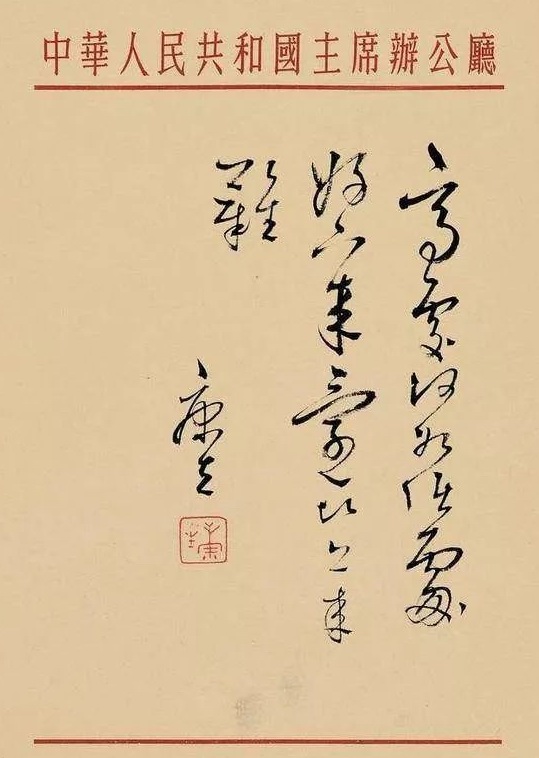 中華人民共和國主席辦公廳
高處何如低處
好下來還比上來
難
康生